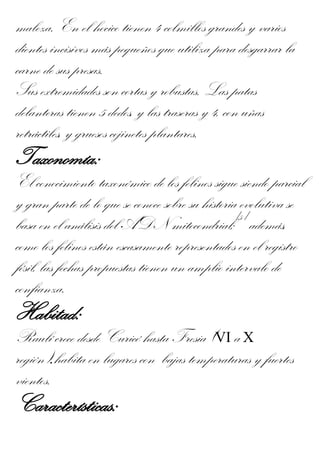 maleza. En el hocico tienen 4 colmillos grandes y varios
dientes incisivos más pequeños que utiliza para desgarrar la
carne de sus presas.
Sus extremidades son cortas y robustas. Las patas
delanteras tienen 5 dedos, y las traseras y 4, con uñas
retráctiles, y gruesos cojinetes plantares.
Taxonomía:
El conocimiento taxonómico de los felinos sigue siendo parcial
y gran parte de lo que se conoce sobre su historia evolutiva se
basa en el análisis del ADN mitocondrial; además,
como los felinos están escasamente representados en el registro
fósil, las fechas propuestas tienen un amplio intervalo de
confianza.
Habitad:
Raulí crece desde Curicó hasta Fresia (VI a X
región), habita en lugares con bajas temperaturas y fuertes
vientos.
Características: